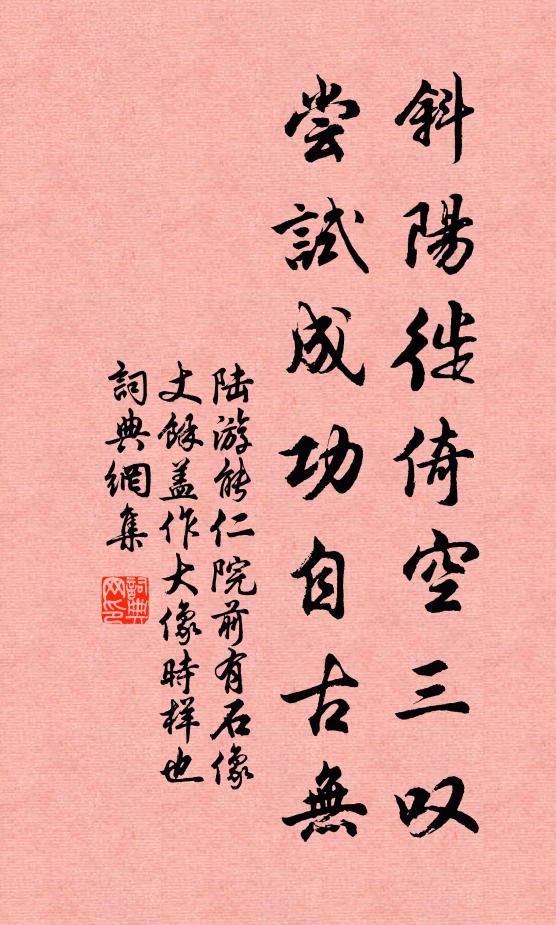 斜陽徙倚空三叹
尝試成功自古無
陆游能仁院前有石像
丈餘盖作大像時样也
詞典網集
詞典網印